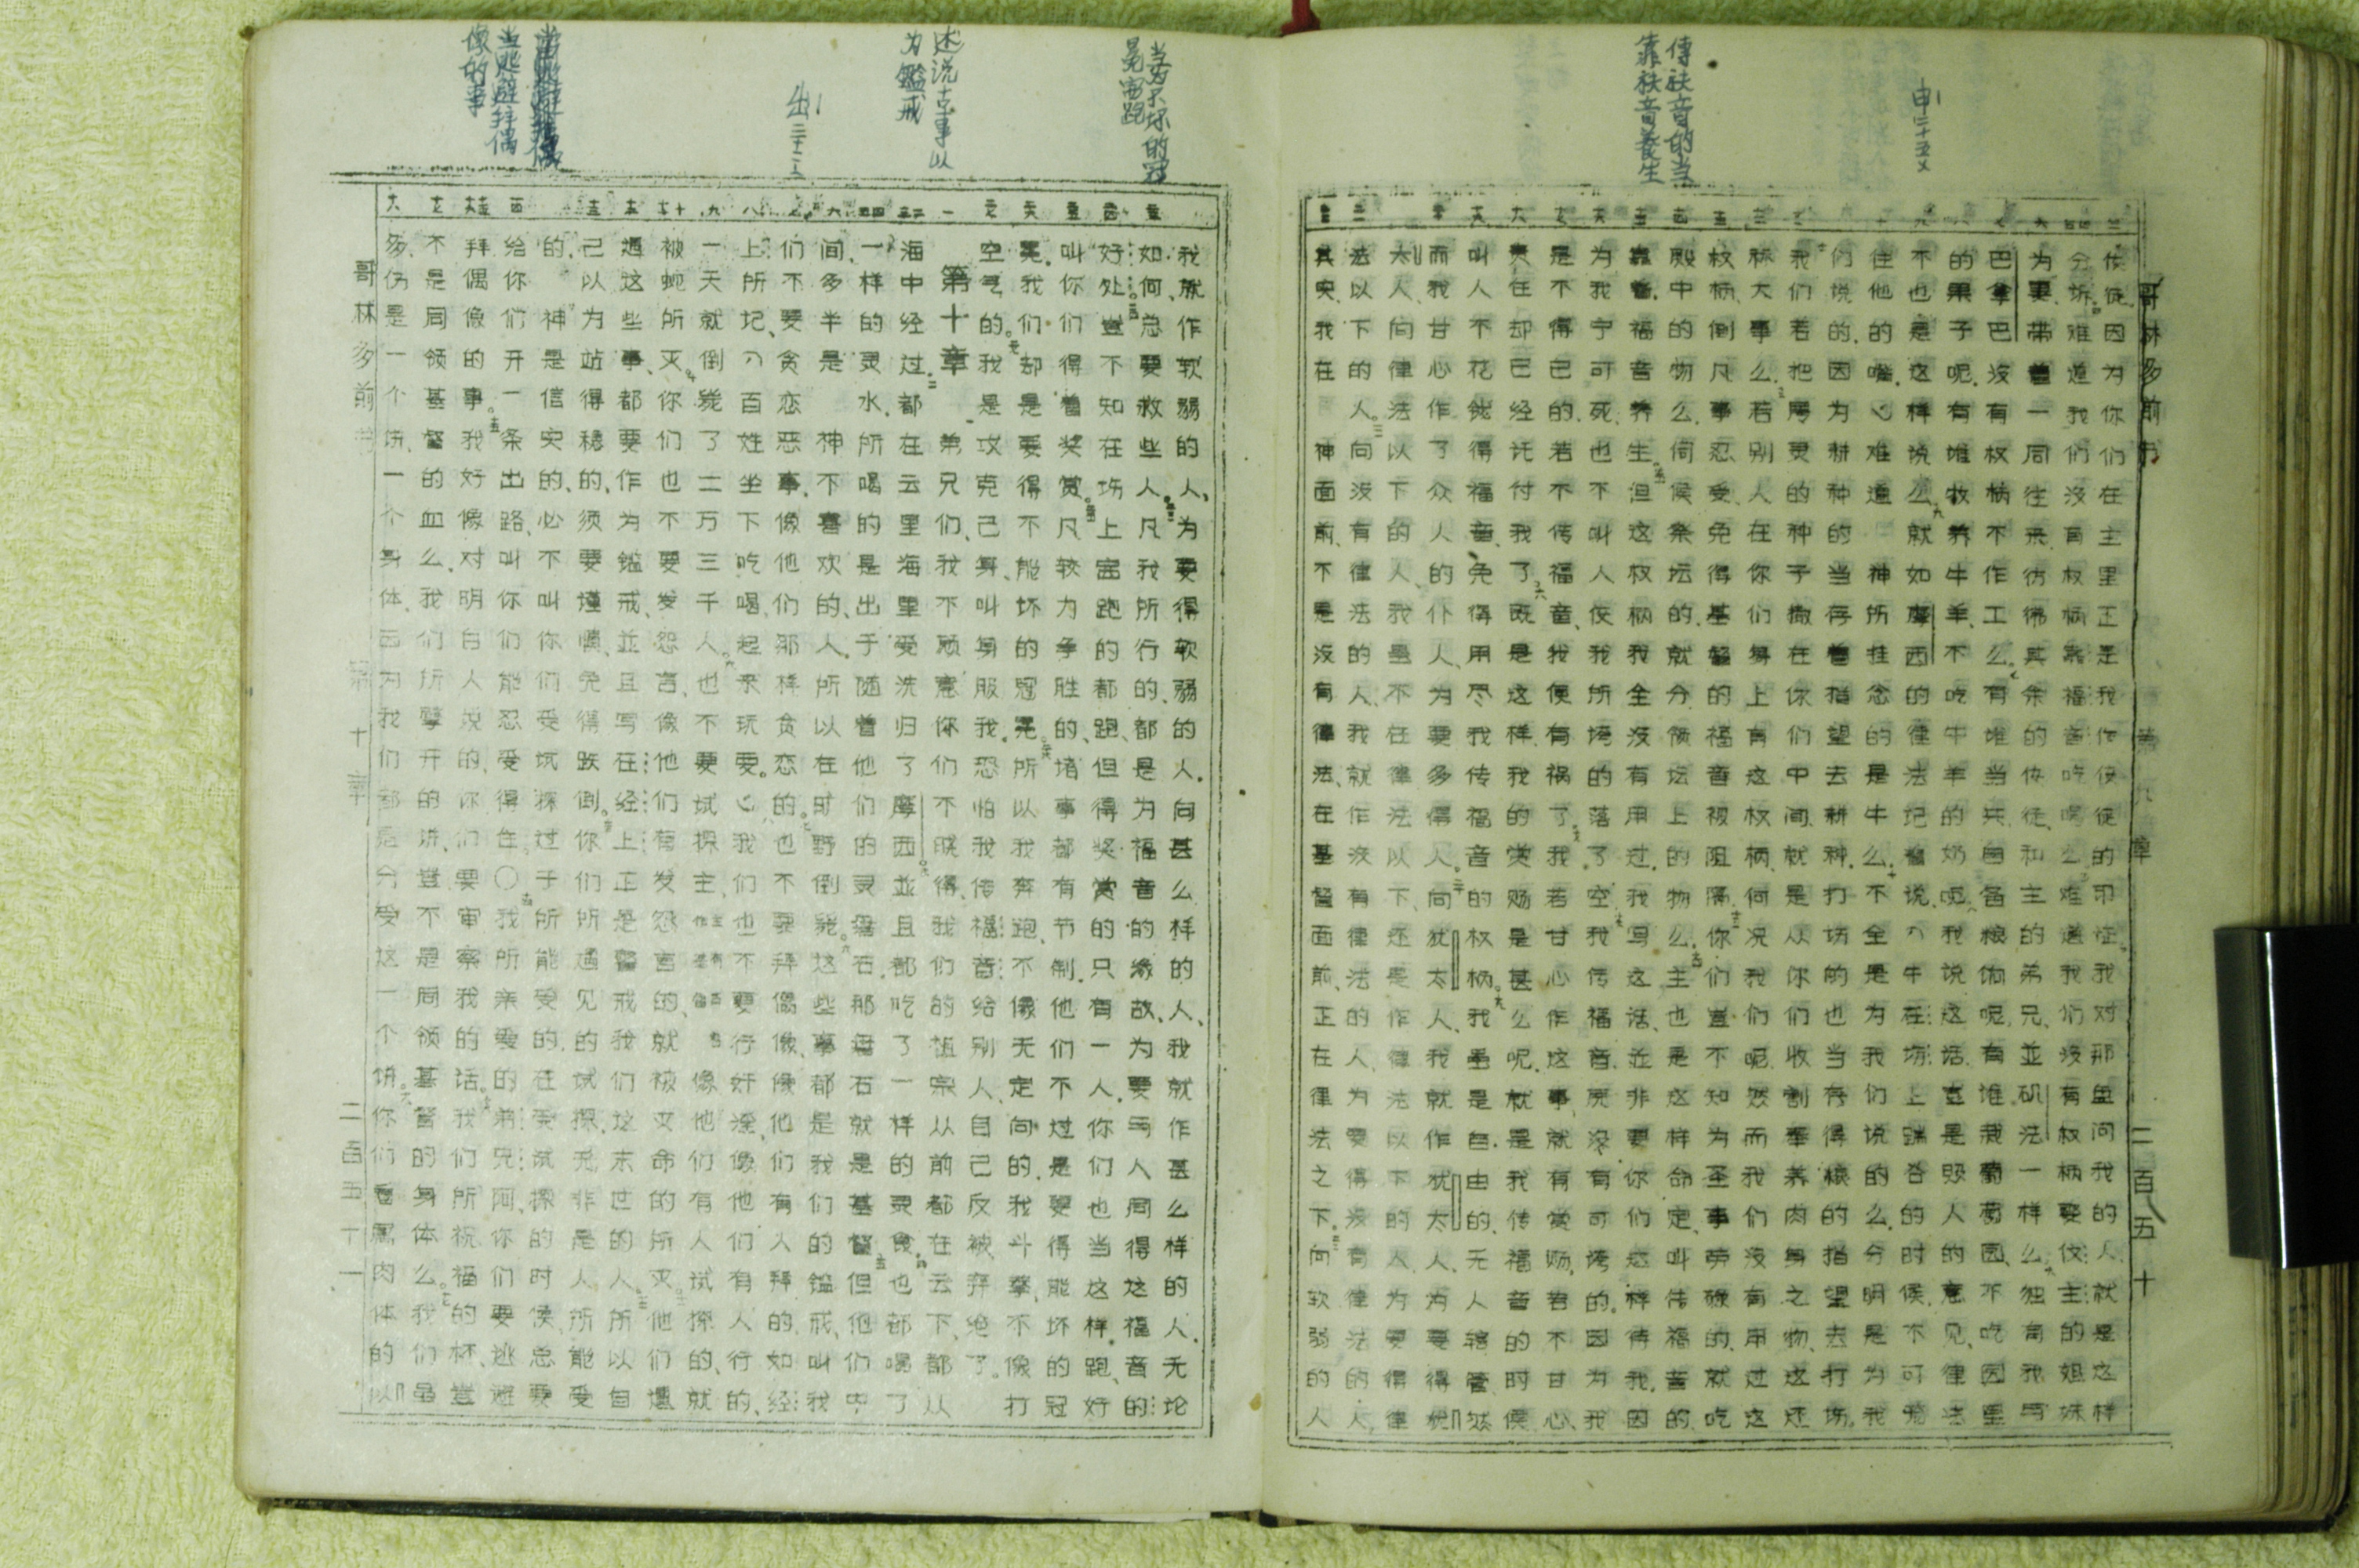 申二十五4
哥林多前书
第九章
二百五十
使徒因为你们在主里正是我作使徒的印证、我对那盘问我的人就是这样
分诉、难道我们没有权柄靠福音吃喝么、难道我们没有权柄娶信主的姐妹
为妻、带着一同往来、彷彿其余的使徒、和主的弟兄、並矶法一样么、独有我与
巴拿巴没有权柄不作工么、有谁当兵自备粮饷呢、有谁栽葡萄园、不吃园里
的果子呢、有谁牧养牛羊、不吃牛羊的奶呢、我说这话岂是照人的意见、律法
不也是这样说么、就如摩西的律法记着说、牛在场上踹谷的时候、不可笼
住他的嘴、难道神所挂念的是牛么、不全是为我们说的么、分明是为我
们说的、因为耕种的当存着指望去耕种、打场的也当存得粮的指望去打场、
我们若把属灵的种子撒在你们中间、就是从你们收割奉养肉身之物、这还
算大事么、若别人在你们身上有这权柄、何况我们呢、然而我们没有用过这
权柄、倒凡事忍受、免得基督的福音被阻隔、你们岂不知为圣事劳碌的、就吃
殿中的物么、伺候祭坛的、就分领坛上的物么、主也是这样命定、叫传福音的
靠着福音养生、但这权柄我全没有用过、我写这话、並非要你们这样待我、因
为我宁可死、也不叫人使我所夸的落了空、我传福音原没有可夸的、因为我
是不得已的、若不传福音、我便有祸了、我若甘心作这事、就有赏赐、若不甘心、
责任却已经托付我了、既是这样、我的赏赐是甚么呢、就是我传福音的时候
叫人不花钱得福音、免得用尽我传福音的权柄、我虽是自由的、无人辖管、然
而我甘心作了众人的仆人、为要多得人、向犹太人、我就作犹太人、为要得犹
太人、向律法以下的人、我虽不在律法以下、还是作律法以下的人、为要得律
法以下的人、向没有律法的人、我就作没有律法的人、为要得没有律法的人、
其实我在神面前、不是没有律法、在基督面前、正在律法之下、向软弱的人
述说古事以
为鑑戒
出三十二
当逃避拜偶
像的事
我就作软弱的人、为要得软弱的人、向甚么样的人、我就作甚么样的人、无论
如何、总要救些人、凡我所行的、都是为福音的缘故、为要与人同得这福音的
好处、岂不知在场上赛跑的都跑、但得奖赏的只有一人、你们也当这样跑、好
叫你们得着奖赏、凡较力争胜的、诸事都有节制、他们不过是要得能坏的冠
冕、我们却是要得不能坏的冠冕、所以我奔跑、不像无定向的、我斗拳、不像打
空气的、我是攻克己身、叫身服我、恐怕我传福音给别人、自己反被弃绝了、
第十章
弟兄们、我不愿意你们不晓得、我们的祖宗从前都在云下、都从
海中经过、都在云里海里受洗归了摩西、並且都吃了一样的灵食、也都喝了
一样的灵水、所喝的是出于随着他们的灵磐石、那磐石就是基督、但他们中
间、多半是神不喜欢的人、所以在旷野倒毙、这些事都是我们的鑑戒、叫我
们不要贪恋恶事、像他们那样贪恋的、也不要拜偶像、像他们有人拜的、如经
上所记、百姓坐下吃喝、起来玩耍、我们也不要行奸淫、像他们有人行的、
一天就倒毙了二万三千人、也不要试探主、像他们有人试探的、就
被蛇所灭、你们也不要发怨言、像他们有发怨言的、就被灭命的所灭、他们遭
遇这些事、都要作为鑑戒、並且写在经上、正是警戒我们这末世的人、所以自
己以为站得稳的、须要谨慎、免得跌倒、你们所遇见的试探、无非是人所能受
的、神是信实的、必不叫你们受试探过于所能受的、在受试探的时候、总要
给你们开一条出路、叫你们能忍受得住、○我所亲爱的弟兄阿、你们要逃避
拜偶像的事、我好像对明白人说的、你们要审察我的话、我们所祝福的杯、岂
不是同领基督的血么、我们所擘开的饼、岂不是同领基督的身体么、我们虽
多、仍是一个饼、一个身体、因为我们都是分受这一个饼、你们看属肉体的以
哥林多前书
第十章
二百五十一